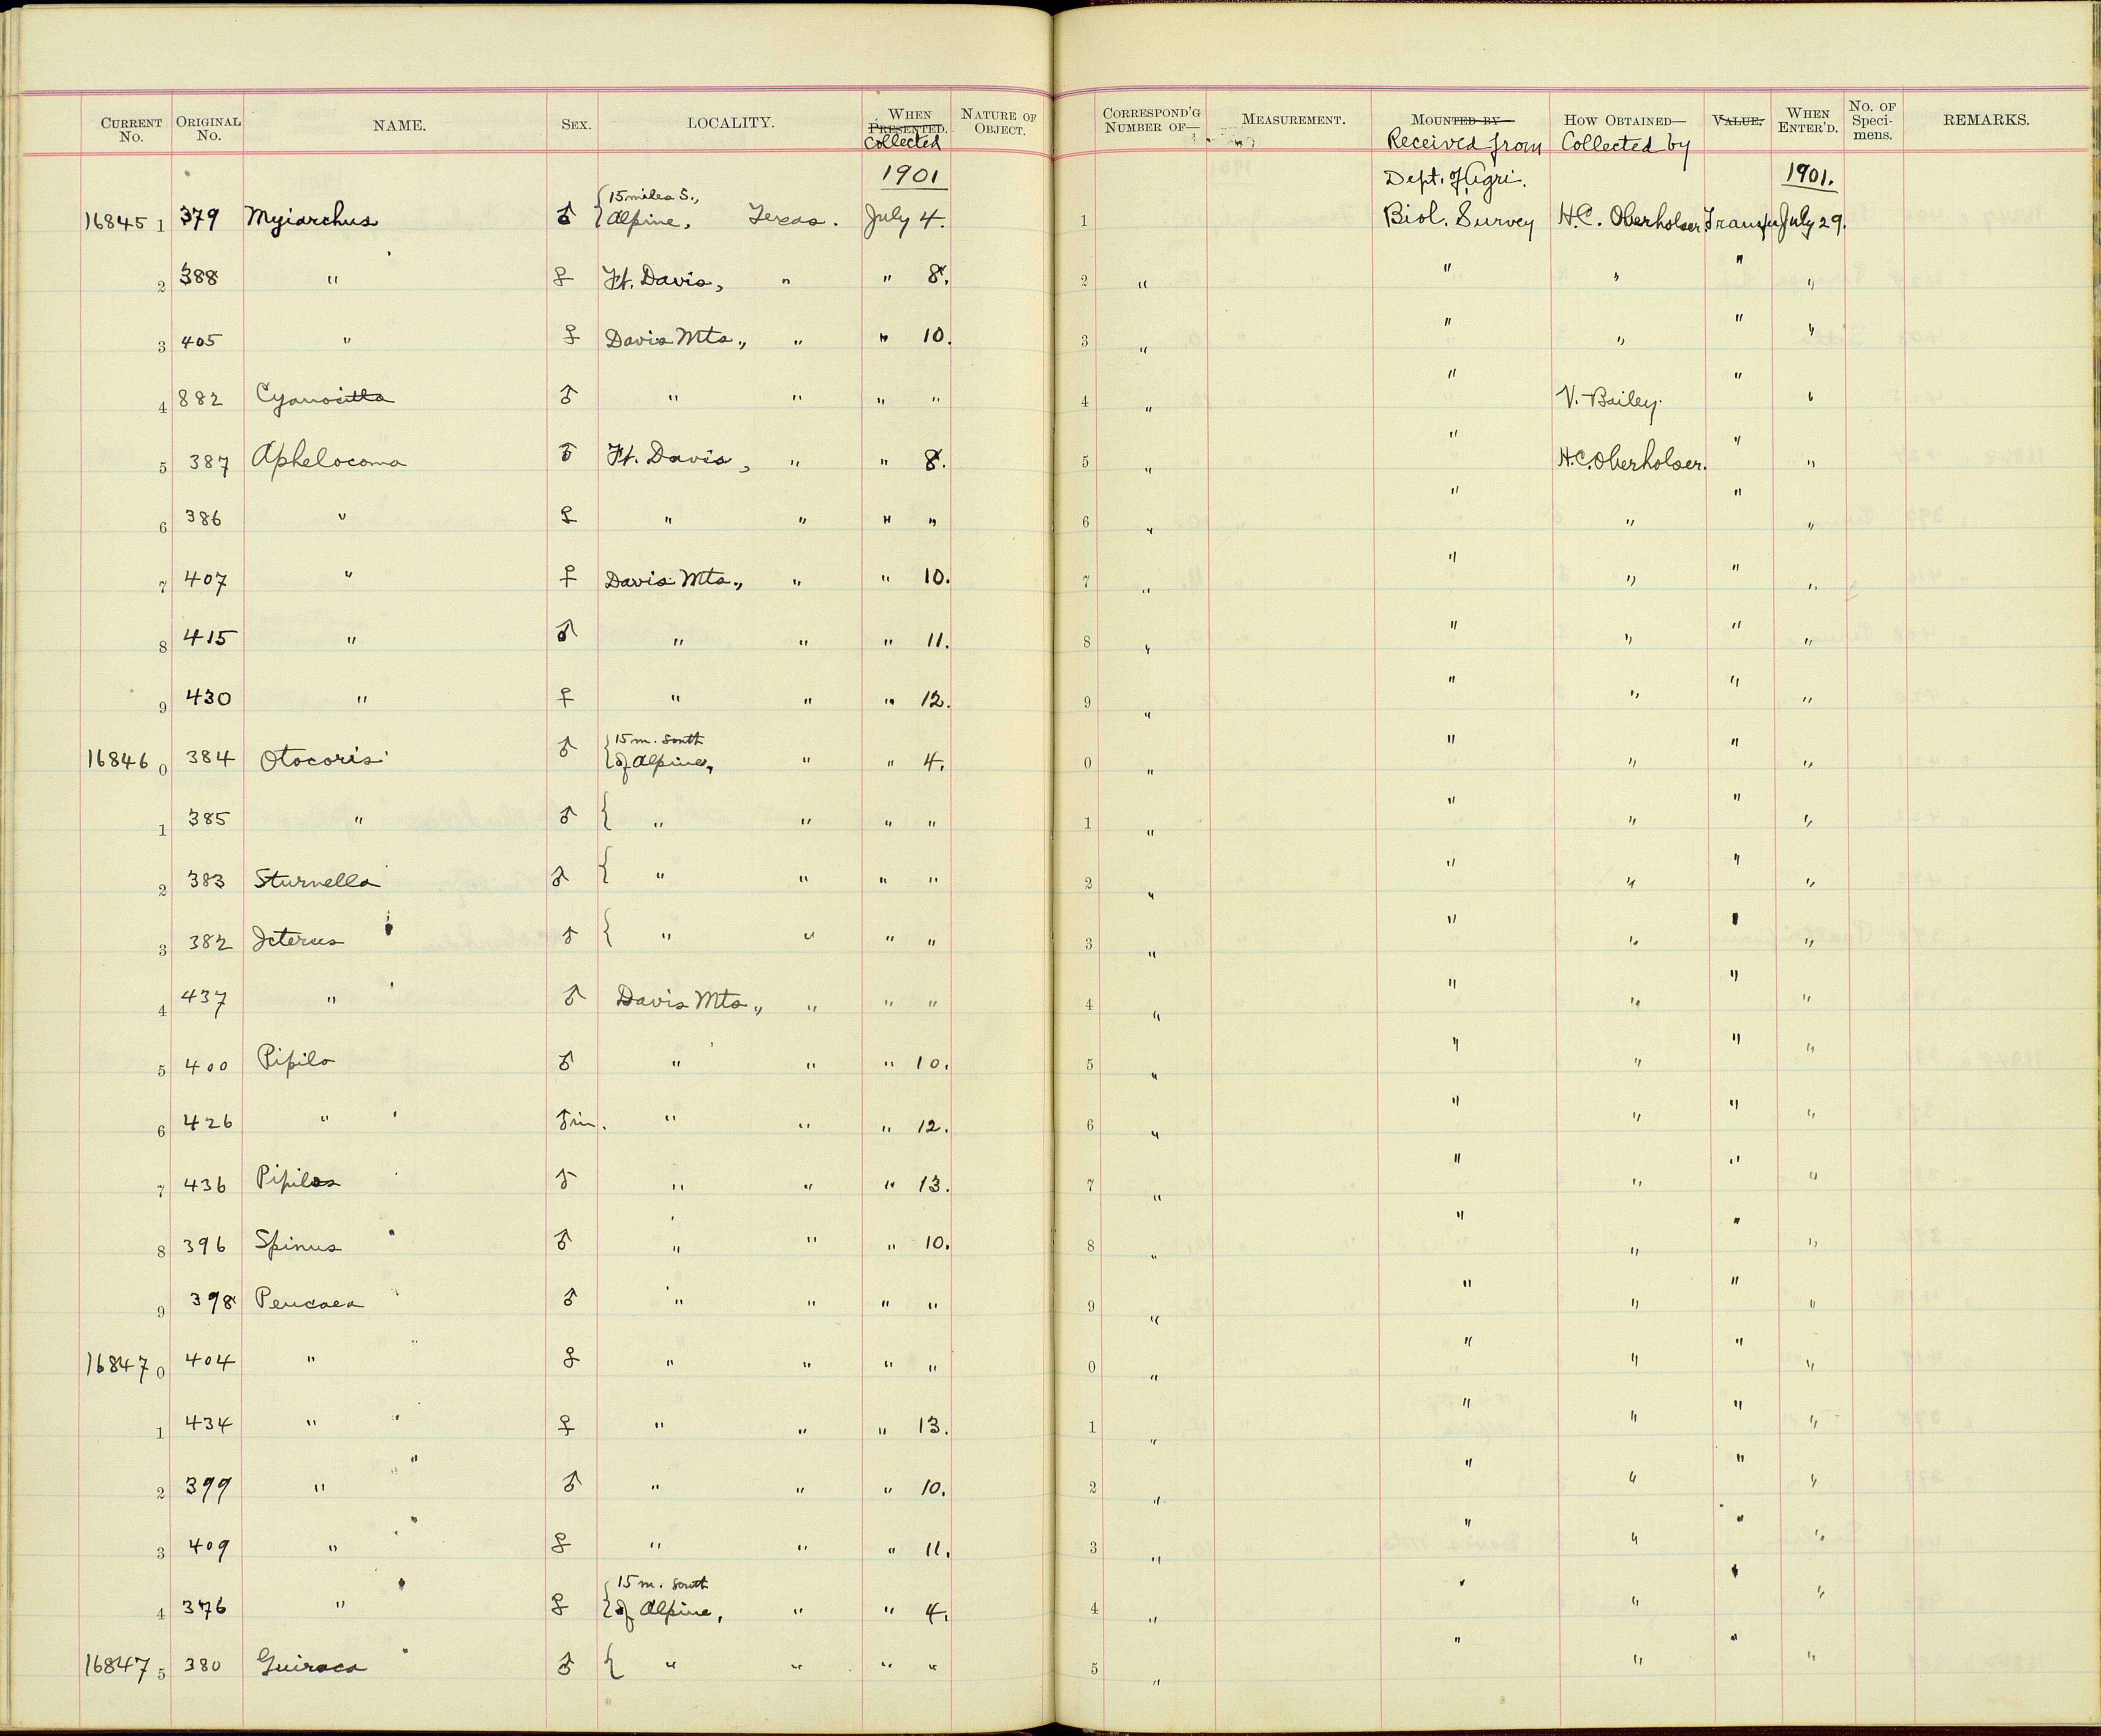 CURRENT No. ORIGINAL No. NAME. SEX. LOCALITY. WHEN PRESENTED. Collected NATURE OF OBJECT. CORRESPOND'G NUMBER OF— MEASUREMENT. MOUNTED BY— Received from HOW OBTAINED— Collected by VALUE. WHEN ENTER'D. No. OF Specimens. REMARKS.
1901 Dept. of Agri. 1901.
16845 1 379 Myiarchus ♂ { 15 miles S., Alpine, Texas. July 4. 1 Biol. Survey H.C. Oberholser Transfer July 29.
2 388 " ♀ Ft. Davis, " " 8. 2 " " " " "
3 405 " ♀ Davis Mts., " " 10. 3 " " " " "
4 882 Cyanocitta ♂ " " " " 4 " " V. Bailey. " "
5 387 Aphelocoma ♂ Ft. Davis, " " 8. 5 " " H.C. Oberholser. " "
6 386 " ♀ " " " " 6 " " " " "
7 407 " ♀ Davis Mts., " " 10. 7 " " " " "
8 415 " ♂ " " " 11. 8 " " " " "
9 430 " ♀ " " " 12. 9 " " " " "
16846 0 384 Otocoris ♂ { 15 m. South of Alpine, " " 4. 0 " " " " "
1 385 " ♂ { " " " " 1 " " " " "
2 383 Sturnella ♂ { " " " " 2 " " " " "
3 382 Icterus ♂ { " " " " 3 " " " " "
4 437 " ♂ Davis Mts., " " " 4 " " " " "
5 400 Pipilo ♂ " " " 10. 5 " " " " "
6 426 " ♂ im. " " " 12. 6 " " " " "
7 436 Pipilo ♂ " " " 13. 7 " " " " "
8 396 Spinus ♂ " " " 10. 8 " " " " "
9 398 Peucaea ♂ " " " " 9 " " " " "
16847 0 404 " ♀ " " " " 0 " " " " "
1 434 " ♀ " " " 13. 1 " " " " "
2 399 " ♂ " " " 10. 2 " " " " "
3 409 " ♀ " " " 11. 3 " " " " "
4 376 " ♀ { 15 m. South of Alpine, " " 4. 4 " " " " "
16847 5 380 Guiraca ♂ { " " " " 5 " " " " "